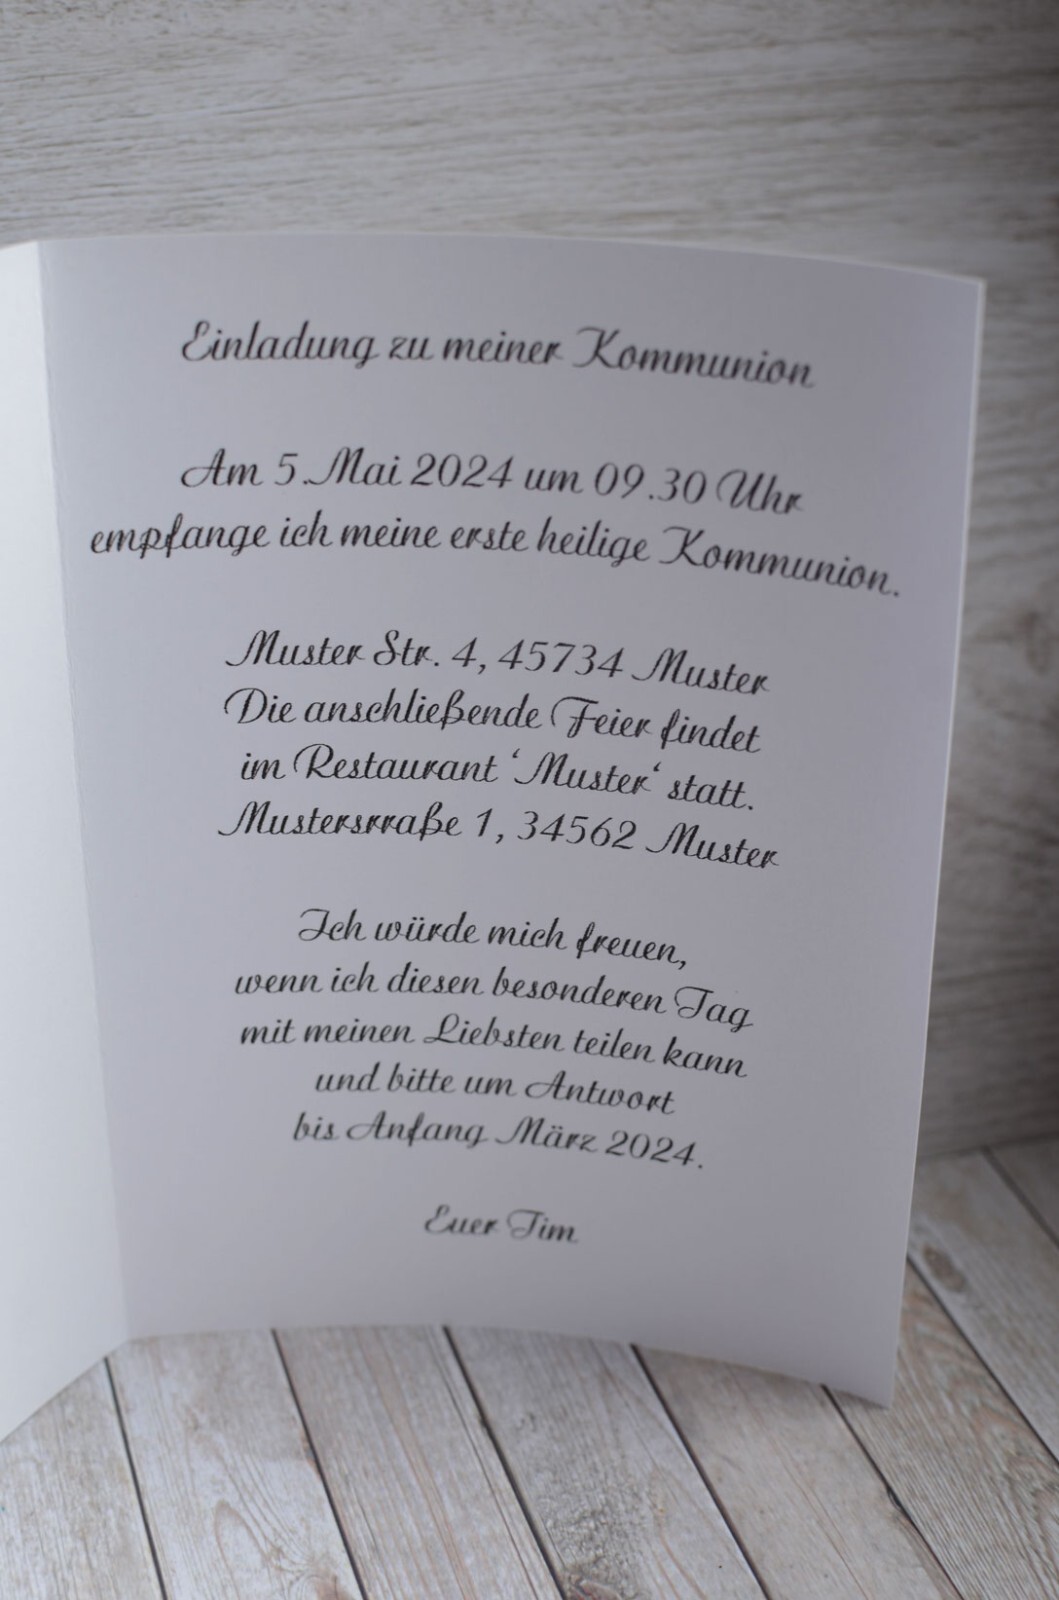 Einladung zu meiner Kommunion
Am 5.Mai 2024 um 09.30 Uhr
empfange ich meine erste heilige Kommunion.
Muster Str. 4, 45734 Muster
Die anschließende Feier findet
im Restaurant ‘Muster‘ statt.
Mustersrraße 1, 34562 Muster
Ich würde mich freuen,
wenn ich diesen besonderen Tag
mit meinen Liebsten teilen kann
und bitte um Antwort
bis Anfang März 2024.
Euer Tim